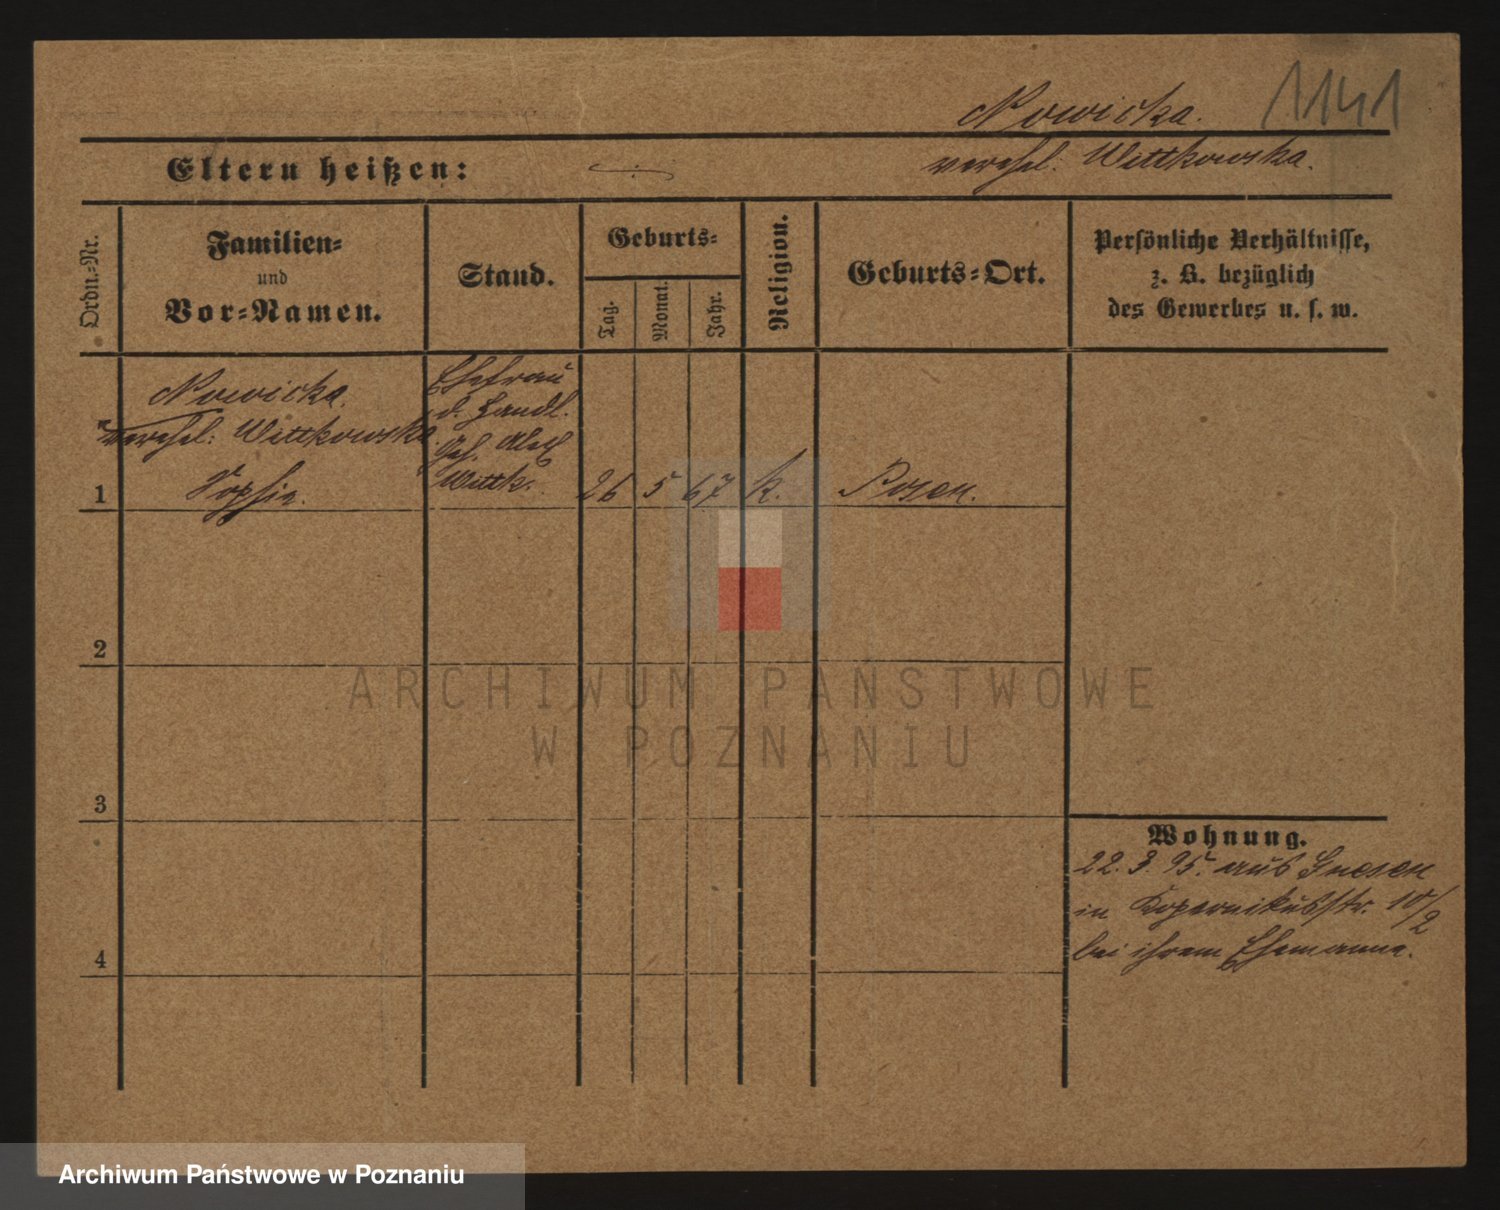 Nowicka. 1141
Eltern heißen: verehel: Wittkowska.
Ordn.=Nr.
Familien=
und
Vor=Namen.
Stand.
Geburts=
Tag.
Monat.
Jahr.
Religion.
Geburts=Ort.
Persönliche Verhältnisse,
z. B. bezüglich
des Gewerbes u. s. w.
Nowicka.
verehel: Wittkowska.
Sophie.
Ehefrau
d. Handl.
Geh.
Wittk.
1 26 5 67 k. Posen.
2
3
4
Wohnung.
22.3.95. aus Gnesen
in Kopernikusstr. 10/2
bei ihrem Ehemanne.
ARCHIWUM PAŃSTWOWE
W POZNANIU
Archiwum Państwowe w Poznaniu